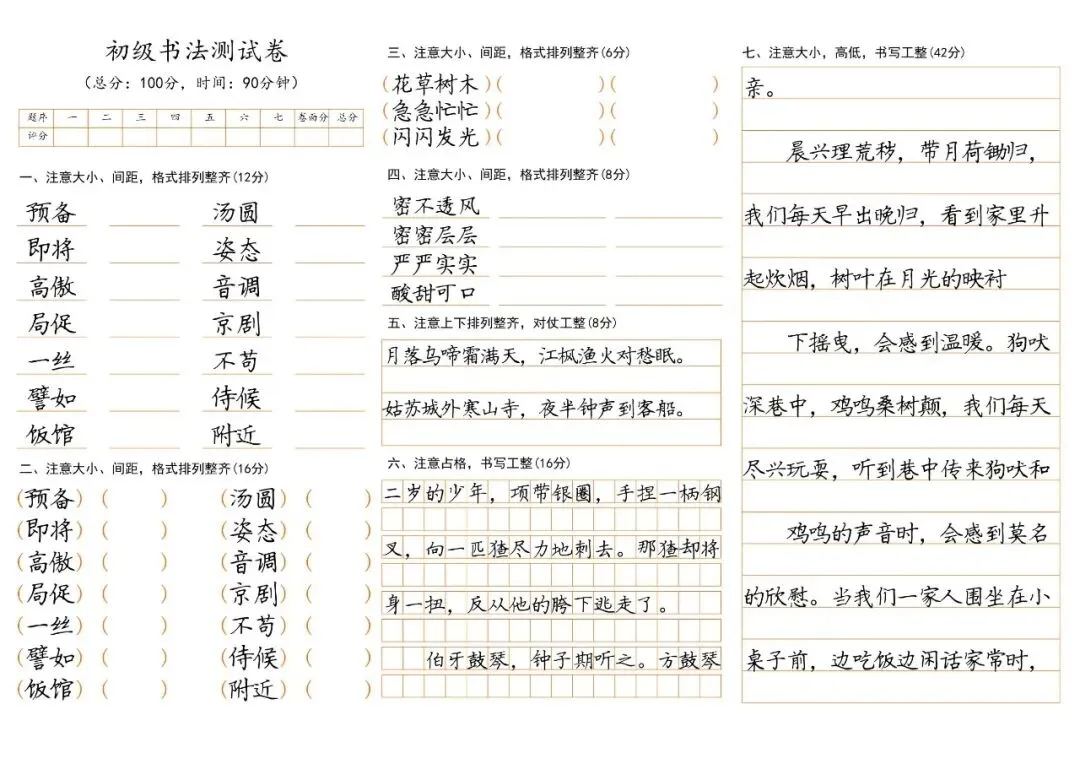 初级书法测试卷
（总分：100分，时间：90分钟）
题序 一 二 三 四 五 六 七 卷面分 总分
评分
一、注意大小、间距，格式排列整齐(12分)
预备 汤圆
即将 姿态
高傲 音调
局促 京剧
一丝 不苟
譬如 侍候
饭馆 附近
二、注意大小、间距，格式排列整齐(16分)
(预备) ( ) (汤圆) ( )
(即将) ( ) (姿态) ( )
(高傲) ( ) (音调) ( )
(局促) ( ) (京剧) ( )
(一丝) ( ) (不苟) ( )
(譬如) ( ) (侍候) ( )
(饭馆) ( ) (附近) ( )
三、注意大小、间距，格式排列整齐(6分)
(花草树木) ( ) ( )
(急急忙忙) ( ) ( )
(闪闪发光) ( ) ( )
四、注意大小、间距，格式排列整齐(8分)
密不透风
密密层层
严严实实
酸甜可口
五、注意上下排列整齐，对仗工整(8分)
月落乌啼霜满天，江枫渔火对愁眠。
姑苏城外寒山寺，夜半钟声到客船。
六、注意占格，书写工整(16分)
二岁的少年，项带银圈，手捏一柄钢
叉，向一匹猹尽力地刺去。那猹却将
身一扭，反从他的胯下逃走了。
伯牙鼓琴，钟子期听之。方鼓琴
七、注意大小，高低，书写工整(42分)
亲。
晨兴理荒秽，带月荷锄归，
我们每天早出晚归，看到家里升
起炊烟，树叶在月光的映衬
下摇曳，会感到温暖。狗吠
深巷中，鸡鸣桑树颠，我们每天
尽兴玩耍，听到巷中传来狗吠和
鸡鸣的声音时，会感到莫名
的欣慰。当我们一家人围坐在小
桌子前，边吃饭边闲话家常时，